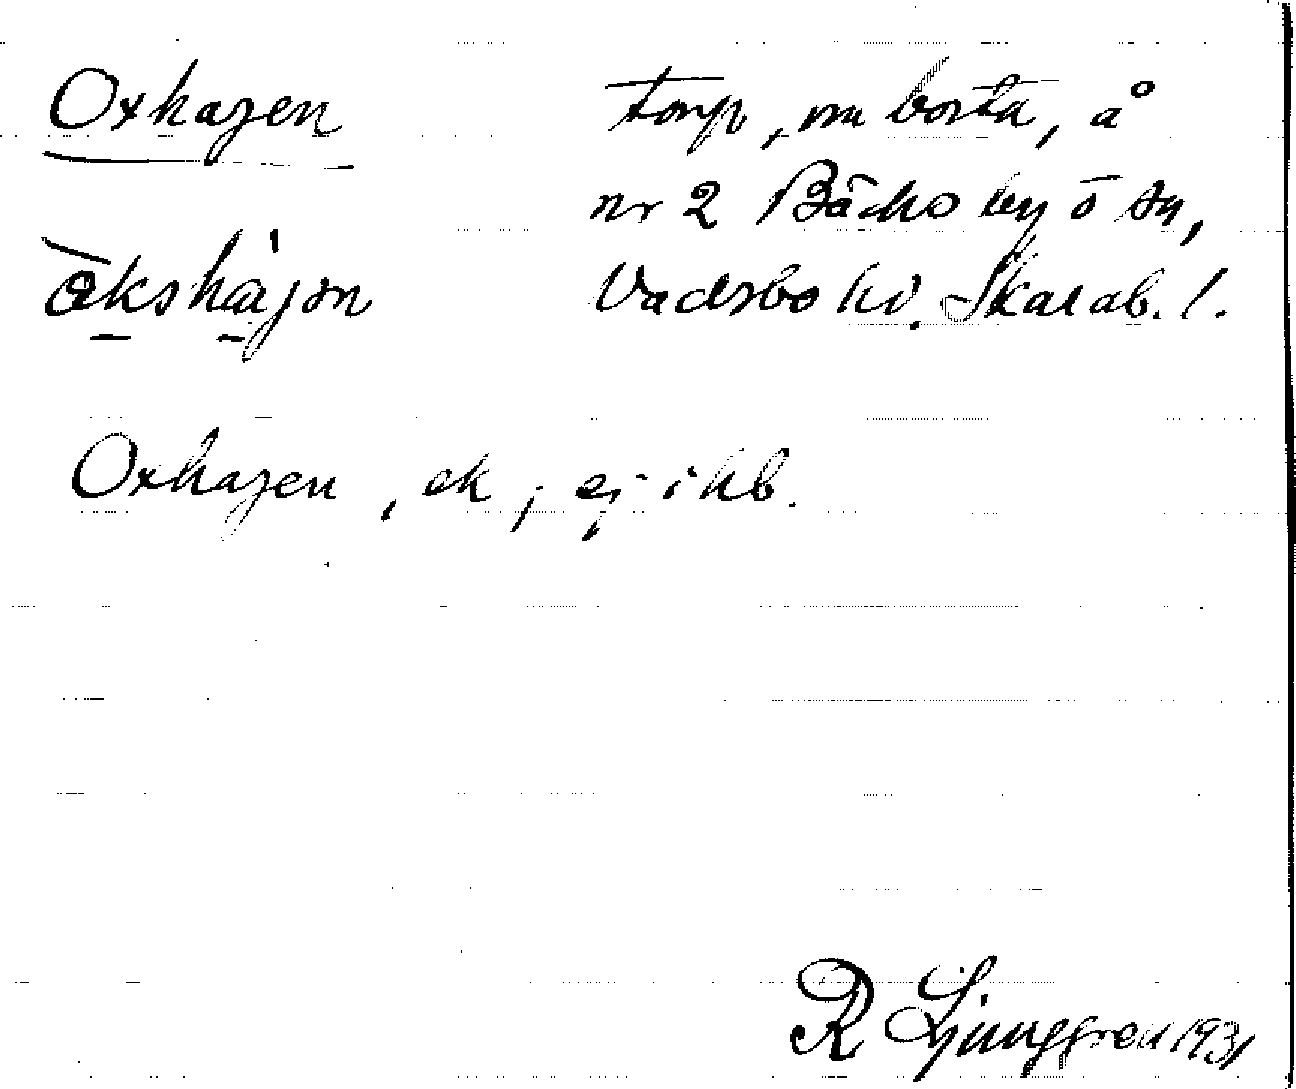 Oxhagen torp, nu borta, å
nr 2 Bäcks by ö sn,
åkshajon Vadsbo hd. Skarab. l.
Oxhagen, ek, ej i hb.
R Ljunggren 1931